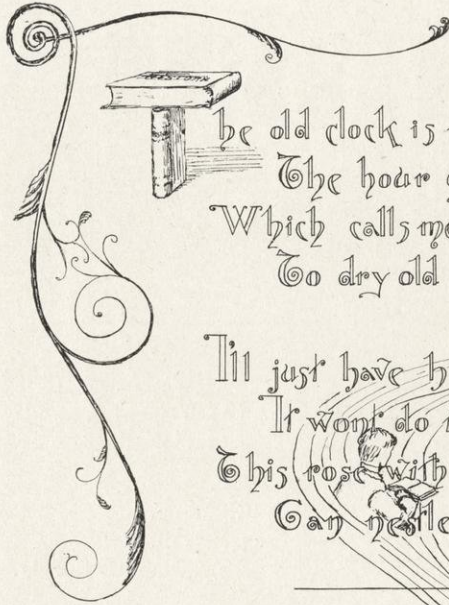 HISTORY
The old clock is
The hour
Which calls me
To dry old
I'll just have h
It wont do
This rose with
Can nestle